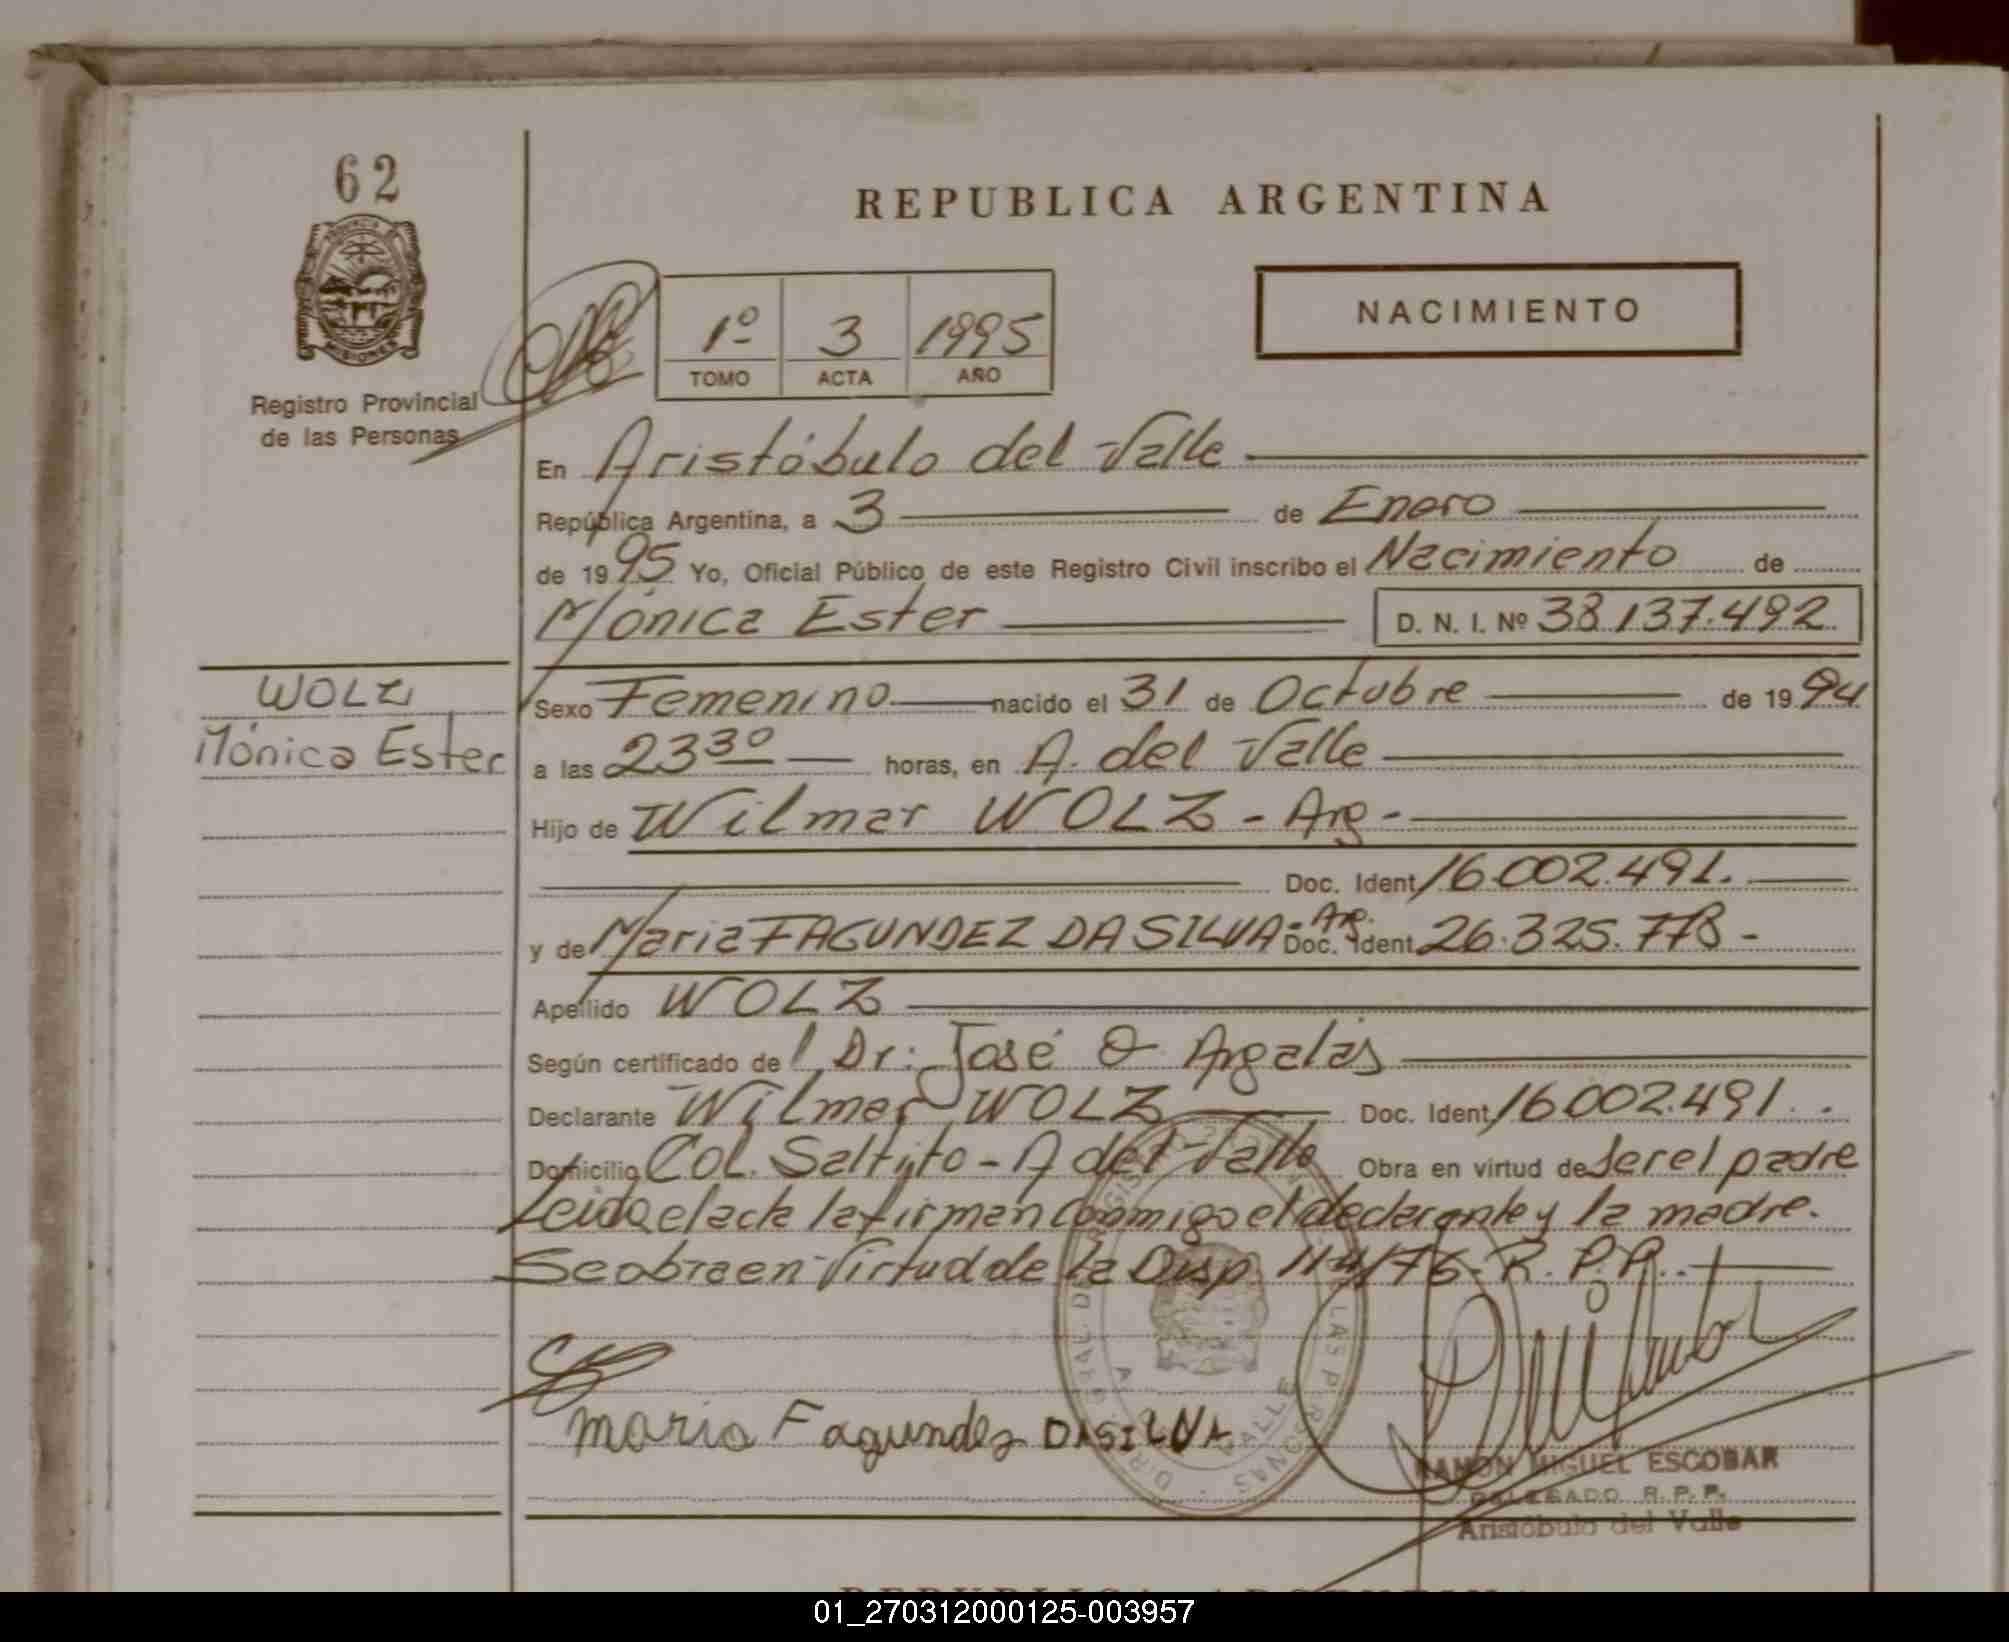 62
REPUBLICA ARGENTINA
PROVINCIA DE
MISIONES
1º 3 1995
TOMO ACTA AÑO
NACIMIENTO
Registro Provincial
de las Personas
En Aristóbulo del Valle
República Argentina, a 3 de Enero
de 1995 Yo, Oficial Público de este Registro Civil inscribo el Nacimiento de
Mónica Ester D. N. I. Nº 38.137.492
WOLZ
Mónica Ester
Sexo Femenino nacido el 31 de Octubre de 1994
a las 23³⁰ horas, en A. del Valle
Hijo de Wilmar WOLZ - Arg -
Doc. Ident 16.002.491.
y de Maria FAGUNDEZ DA SILVA - Arg. Doc. Ident 26.325.778 -
Apellido WOLZ
Según certificado del Dr: José O Argalás
Declarante Wilmar WOLZ Doc. Ident 16.002.491.
Domicilio Col. Saltito - A del Valle Obra en virtud de ser el padre
Leida el acta la firman conmigo el declarante y la madre.
Se obra en virtud de la Disp 114/76 - R. P. P.
Maria Fagundez DASILVA
RAMON MIGUEL ESCOBAR
DELEGADO R. P. P.
Aristóbulo del Valle
01_270312000125-003957